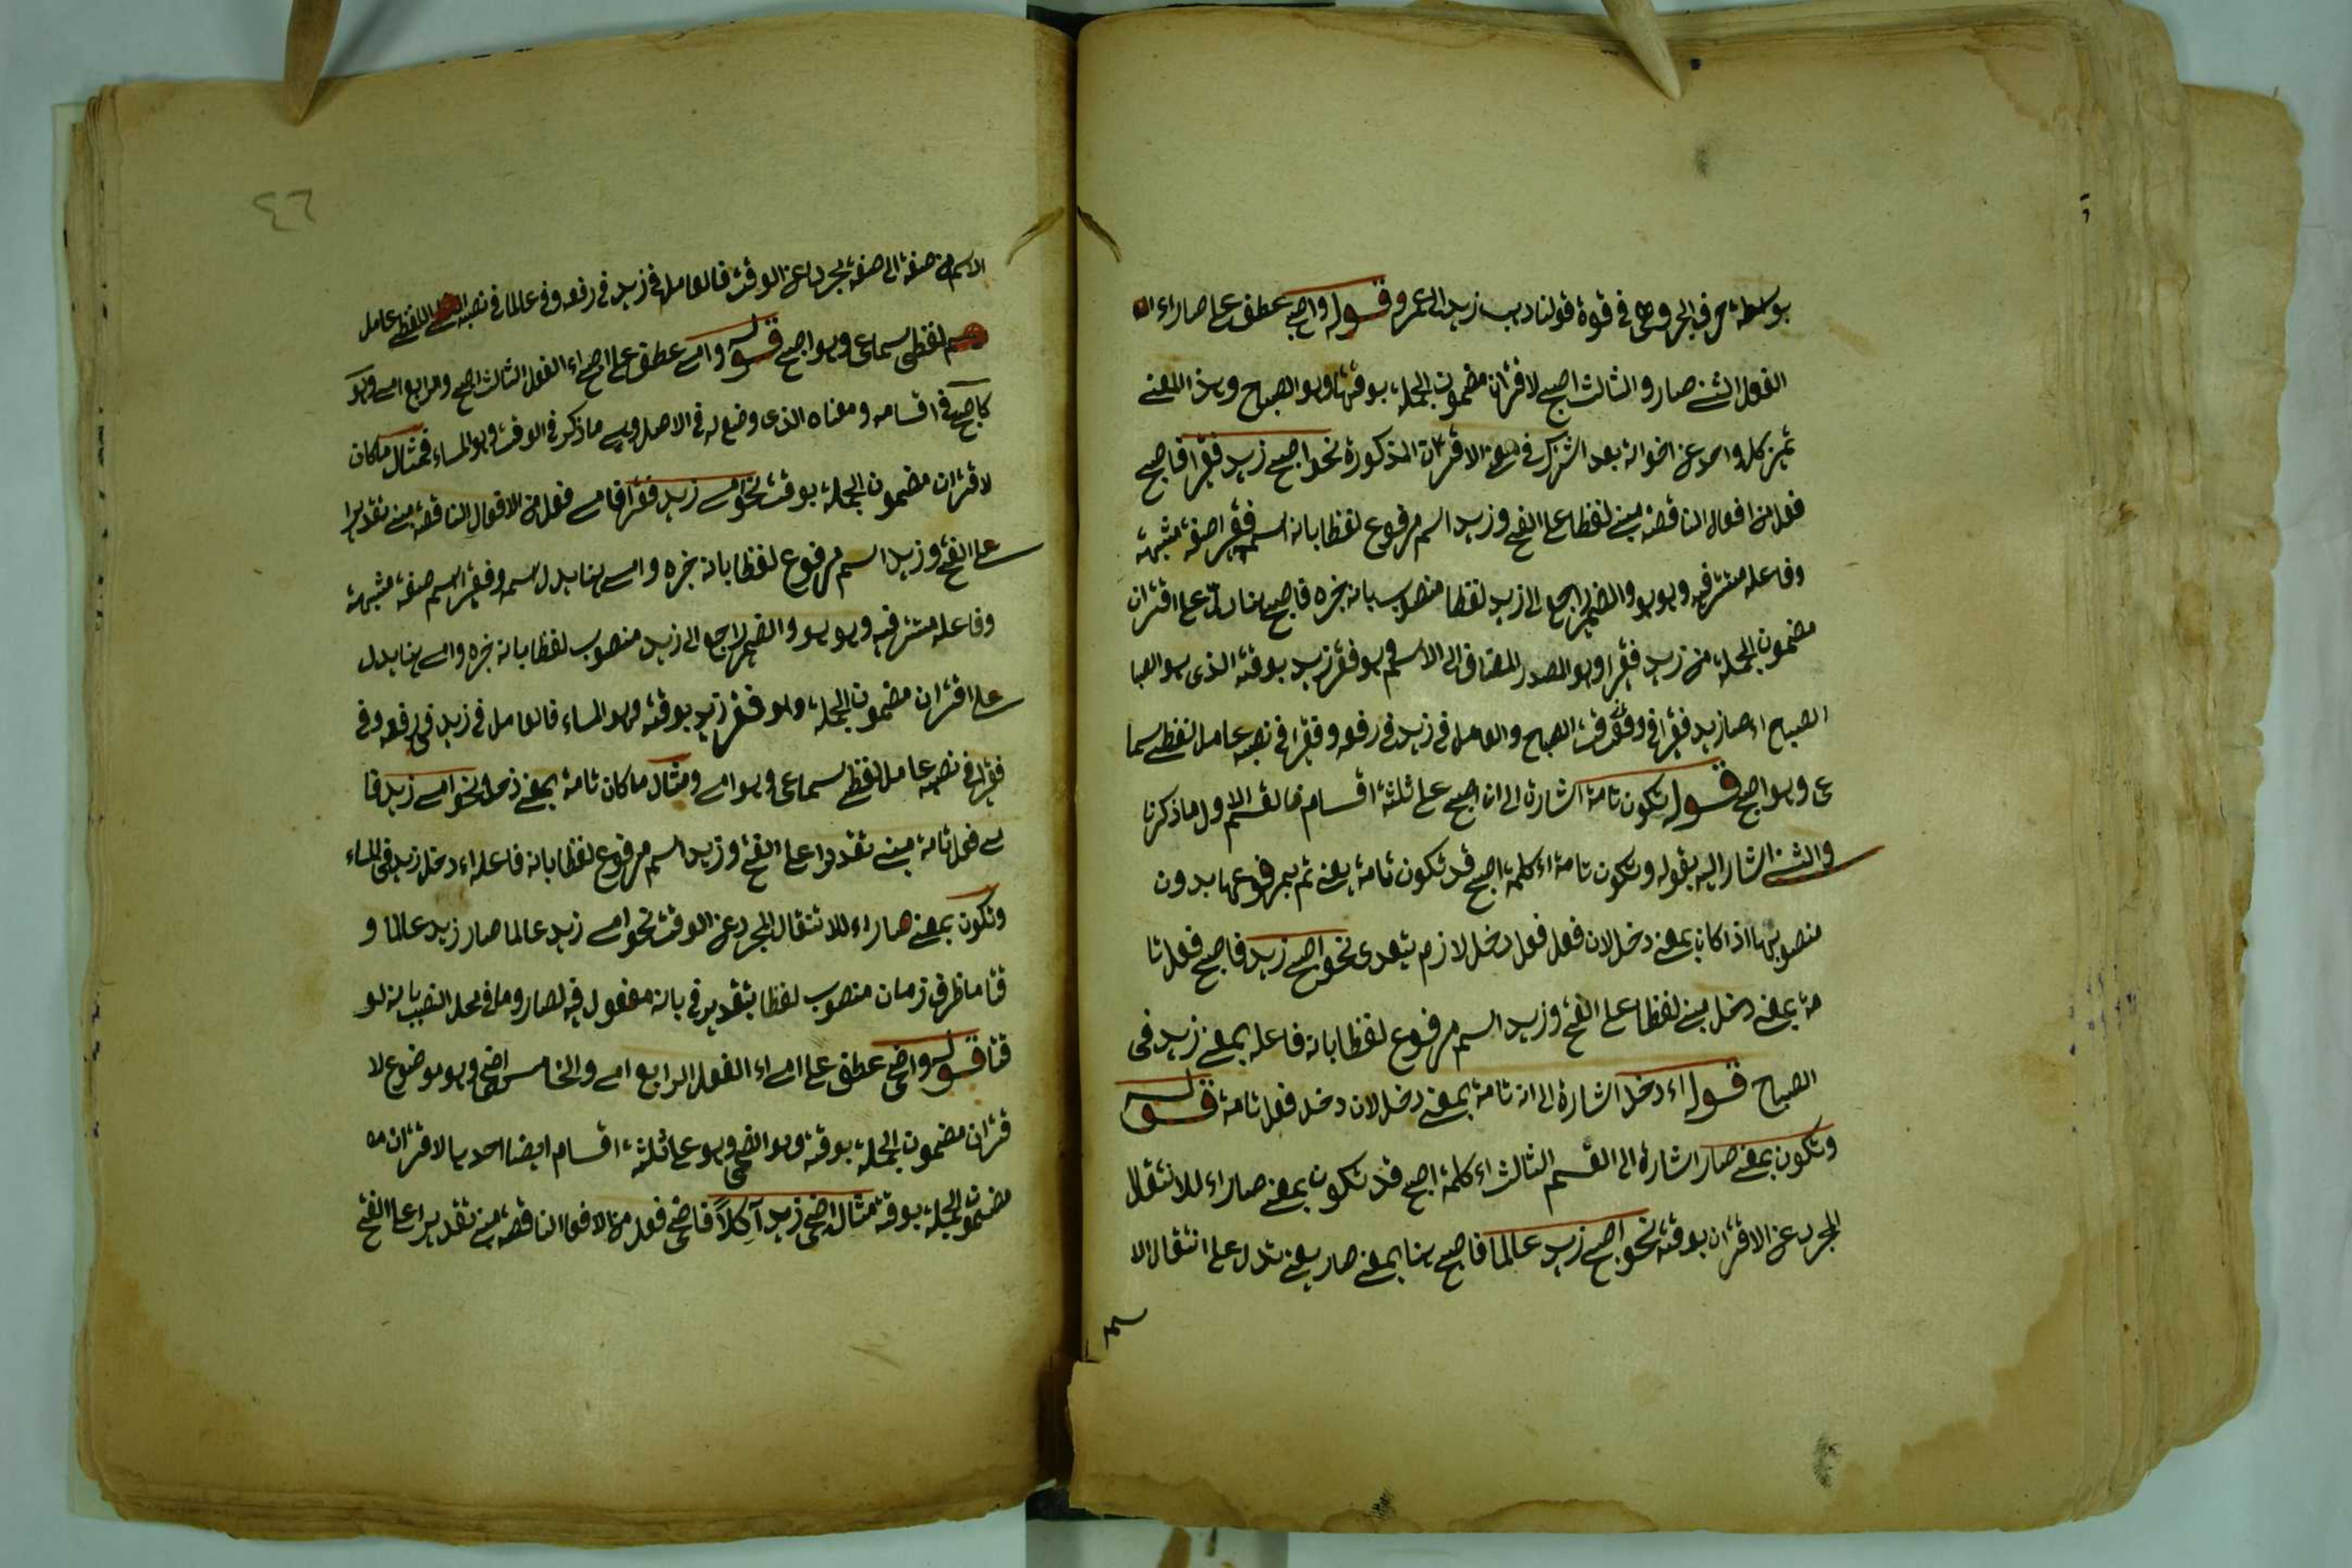 بوسطة حرف الجر وهى فى قوة قولنا ديب زيد الى عمرو قوله واصبح عطف على صار اء
الفعل الثنى صار والثالث اصبح لاقتران مضمون الجملة بوقتها وهو الصباح وهذا المعنى
تميز كل واحد عن اخواته بعد اشتراك فى معنى الاقتران المذكورة نحو اصبح زيد فقيرا فاصبح
فعل من افعال الناقصة مبنى لفظا على الفتح وزيد اسم مرفوع لفظا بانه اسم فقيرا صفة مشبهة
وفاعله مستتر فيه وهو هو والضمير راجع الى زيد لفظا منصوب بانه خبره فاصبح هنا دل على اقتران
مضمون الجملة من زيد فقيرا وهو المصدر المضاف الى الاسم وهو فقر زيد بوقته الذى هو الصبا
الصباح اء صار زيد فقيرا فى وقت الصباح والعامل فى زيد فى رفعه وفقيرا فى نصبه عامل لفظى سما
عى وهو اصبح قوله تكون تامة اشارة الى ان اصبح على ثلثة اقسام فالقسم الاول ما ذكرنا
والثنى اشار اليه بقوله وتكون تامة اء كلمة اصبح قد تكون تامة يعنى تم بمرفوعها بدون
منصوبها اذا كان بمعنى دخل لان فعل فعل دخل لازم يتعدى نحو اصبح زيد فاصبح فعل تا
مة بمعنى دخل مبنى لفظا على الفتح وزيد اسم مرفوع لفظا بانه فاعله بمعنى زيد فى
الصباح قوله اء دخل اشارة الى انه تامة بمعنى دخل لان دخل فعل تامة قوله
وتكون بمعنى صار اشارة الى القسم الثالث اء كلمة اصبح قد تكون بمعنى صار اء للانتقال
المجرد عن الاقتران بوقته نحو اصبح زيد عالما فاصبح هنا بمعنى صار يعنى تدل على انتقال الا
٤٦
الاسم من صفة الى صفة مجردا عن الوقت فالعامل فى زيد فى رفعه وفى عالما فى نصبه اللفظى عامل
لفظى سماعى وهو اصبح قوله وامسى عطف على اصبح اء الفعل الثالث اصبح والرابع امسى وهو
كاصبح فى اقسامه ومعناه الذى وضع له فى الاصل وهى ما ذكر فى الوقت وهو المساء فمثال ما كان
لاقتران مضمون الجملة بوقت نحو امسى زيد فقيرا فامسى فعل من الافعال الناقصة مبنى تقديرا
على الفتح وزيد اسم مرفوع لفظا بانه خبره وامسى هنا يدل اسمه وفقيرا اسم صفة مشبهة
وفاعله مستتر فيه وهو هو والضمير راجع الى زيد منصوب لفظا بانه خبره وامسى هنا يدل
على اقتران مضمون الجملة وهو فقر زيد بوقته وهو المساء فالعامل فى زيد فى رفعه وفى
فقيرا فى نصبه عامل لفظى سماعى وهو امسى ومثال ما كان تامة بمعنى دخل نحو امسى زيد فا
سى فعل تامة مبنى تقديرا على الفتح وزيد اسم مرفوع لفظا بانه فاعله اء دخل زيد فى المساء
وتكون بمعنى صار اء للانتقال المجرد عن الوقت نحو امسى زيد عالما صار زيد عالما و
قتا ما ظرف زمان منصوب لفظا بتقدير فى بانه مفعول فيه لصار وما فى محل النصب بانه لو
قتا قوله واضحى عطف على امسى اء الفعل الرابع امسى والخامس اضحى وهو موضوع لا
قتران مضمون الجملة بوقته وهو الضحى وهو على ثلثة اقسام ايضا احديها الاقتران
مضمون الجملة بوقته مثال اضحى زيد آكلاً فاضحى فعل من الافعال الناقصة مبنى تقديرا على الفتح